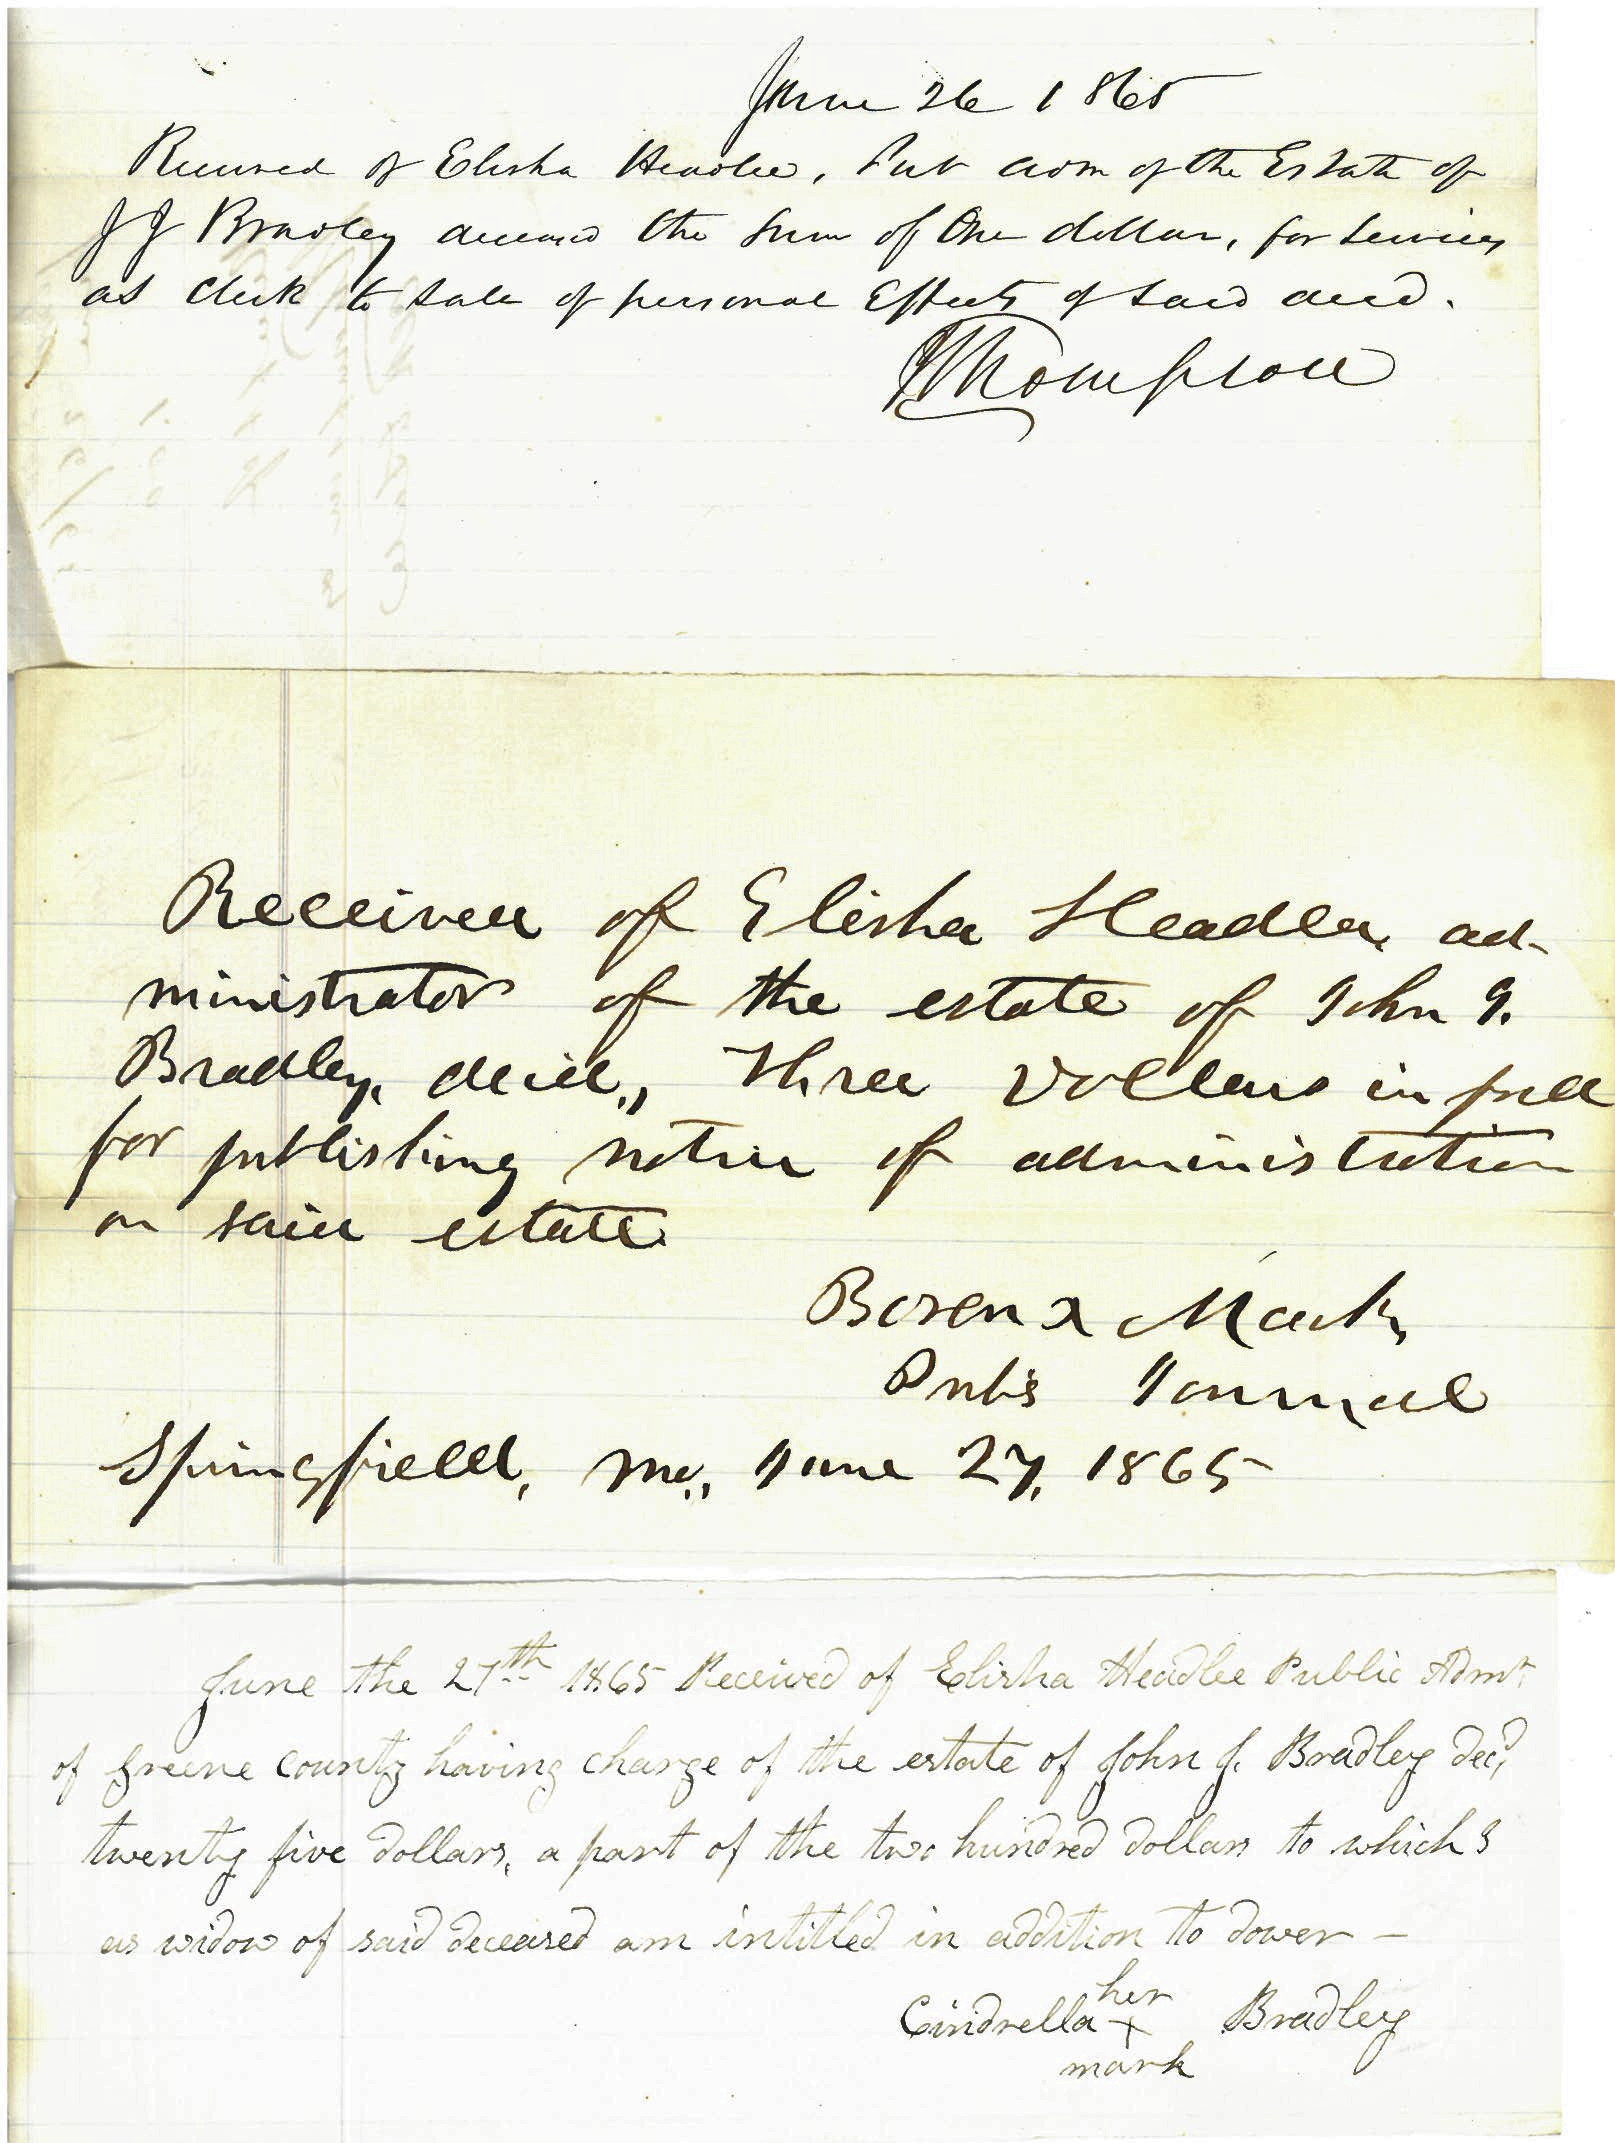 June 26 1865
Received of Elisha Headlee, Pub adm of the Estate of
J J Bradley deceased the Sum of One dollar, for Services
as Clerk to Sale of personal Effects of Said decd.
Thompson
Received of Elisha Headlee, ad-
ministrator of the estate of John J.
Bradley, dec'd., three dollars in full
for publishing notice of administration
on said estate.
Boren & Mack,
Pub's Journal
Springfield, Mo., June 27, 1865
June the 27th 1865 Received of Elisha Headlee Public Admr.
of Greene County having charge of the estate of John J. Bradley decd,
twenty five dollars, a part of the two hundred dollars to which I
as widow of said deceased am intitled in addition to dower —
her
Cindrella + Bradley
mark